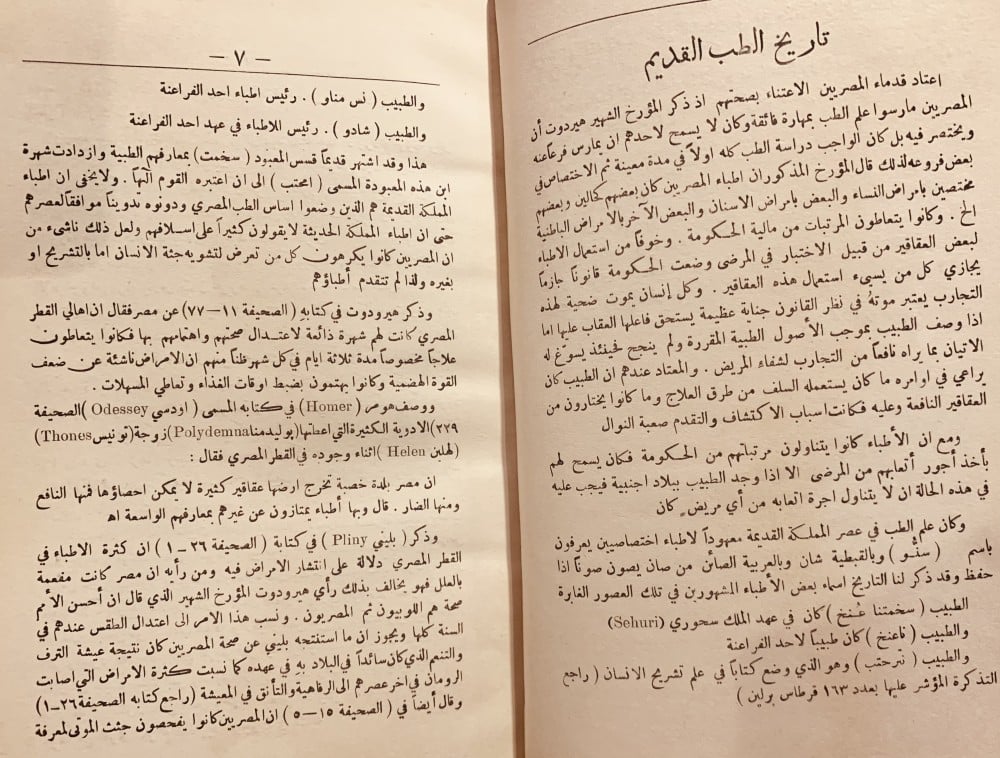 تاريخ الطب القديم
اعتاد قدماء المصريين الاعتناء بصحتهم اذ ذكر المؤرخ الشهير هيردوت أن
المصريين مارسوا علم الطب بمهارة فائقة وكان لا يسمح لاحدهم ان يمارس فرعاً عنه
ويختصر فيه بل كان الواجب دراسة الطب كله اولاً في مدة معينة ثم الاختصاص في
بعض فروعه لذلك قال المؤرخ المذكور ان اطباء المصريين كان بعضهم كحالين وبعضهم
مختصين بامراض النساء والبعض بامراض الاسنان والبعض الآخر بالامراض الباطنية
الخ . وكانوا يتعاطون المرتبات من مالية الحكومة . وخوفاً من استعمال الاطباء
لبعض العقاقير من قبيل الاختبار في المرضى وضعت الحكومة قانوناً جازماً
يجازي كل من يسيء استعمال هذه العقاقير . وكل إنسان يموت ضحية لهذه
التجارب يعتبر موته في نظر القانون جناية عظيمة يستحق فاعلها العقاب عليها اما
اذا وصف الطبيب بموجب الأصول الطبية المقررة ولم ينجح فحينئذ يسوّغ له
الاتيان بما يراه نافعاً من التجارب لشفاء المريض . والمعتاد عندهم ان الطبيب كان
يراعي في اوامره ما كان يستعمله السلف من طرق العلاج وما كانوا يختارون من
العقاقير النافعة وعليه فكانت اسباب الاكتشاف والتقدم صعبة النوال
ومع ان الأطباء كانوا يتناولون مرتباتهم من الحكومة فكان يسمح لهم
بأخذ أجور أتعابهم من المرضى الا اذا وجد الطبيب ببلاد اجنبية فيجب عليه
في هذه الحالة ان لا يتناول اجرة اتعابه من أي مريض كان
وكان علم الطب في عصر المملكة القديمة معهوداً لاطباء اختصاصيين يعرفون
باسم ( سنُو ) وبالقبطية شان وبالعربية الصائن من صان يصون صوناً اذا
حفظ وقد ذكر لنا التاريخ اسماء بعض الأطباء المشهورين في تلك العصور الغابرة
الطبيب ( سخمتنا عُنخ ) كان في عهد الملك سحوري (Sehuri)
والطبيب ( فاعنخ ) كان طبيباً لاحد الفراعنة
والطبيب ( نترحتب ) وهو الذي وضع كتاباً في علم تشريح الانسان ( راجع
التذكرة المؤشر عليها بعدد ١٦٣ قرطاس برلين )
— ٧ —
والطبيب ( نس مناو ) . رئيس اطباء احد الفراعنة
والطبيب ( شادو ) . رئيس للاطباء في عهد احد الفراعنة
هذا وقد اشتهر قديماً قسس المعبود ( سخمت ) بمعارفهم الطبية وازدادت شهرة
ابن هذه المعبودة المسمى ( امحتب ) الى ان اعتبره القوم آلهاً . ولا يخفى ان اطباء
المملكة القديمة هم الذين وضعوا اساس الطب المصري ودونوه تدويناً موافقاً لعصرهم
حتى ان اطباء المملكة الحديثة لا يقولون كثيراً على اسلافهم ولعل ذلك ناشىء من
ان المصريين كانوا يكرهون كل من تعرض لتشويه جثة الانسان اما بالتشريح او
بغيره ولذا لم تتقدم أطباؤهم
وذكر هيرودوت في كتابه ( الصحيفة ١١—٧٧) عن مصر فقال ان اهالي القطر
المصري كانت لهم شهرة ذائعة لاعتدال صحتهم واهتمامهم بها فكانوا يتعاطون
علاجاً مخصوصاً مدة ثلاثة ايام في كل شهر ظناً منهم ان الامراض ناشئة عن ضعف
القوة الهضمية وكانوا يهتمون بضبط اوقات الغذاء وتعاطي المسهلات .
ووصف هومر ( Homer) في كتابه المسمى ( اودسي Odessey )الصحيفة
٢٢٩)الادوية الكثيرة التي اعطتها( بوليدمنا Polydemna) زوجة (تونيس Thones)
(لهلين Helen )اثناء وجوده في القطر المصري فقال :
ان مصر بلدة خصبة تخرج ارضها عقاقير كثيرة لا يمكن احصاؤها فمنها النافع
ومنها الضار . قال وبها أطباء يمتازون عن غيرهم بمعارفهم الواسعة اه
وذكر( بليني Pliny ) في كتابة ( الصحيفة ٢٦ — ١ ) ان كثرة الاطباء في
القطر المصري دلالة على انتشار الامراض فيه ومن رأيه ان مصر كانت مفعمة
بالعلل فهو يخالف بذلك رأي هيرودوت المؤرخ الشهير الذي قال ان أحسن الأمم
صحة هم اللوبيون ثم المصريون . ونسب هذا الامر الى اعتدال الطقس عندهم في
السنة كلها ويجوز ان ما استنتجه بليني عن صحة المصريين كان نتيجة عيشة الترف
والتنعم الذي كان سائداً في البلاد به في عهده كما نسبت كثرة الامراض التي اصابت
الرومان في اخر عصرهم الى الرفاهية والتأنق في المعيشة ( راجع كتابه الصحيفة ٢٦—١)
وقال أيضاً في ( الصحيفة ١٥—٥ ) ان المصريين كانوا يفحصون جثث الموتى لمعرفة